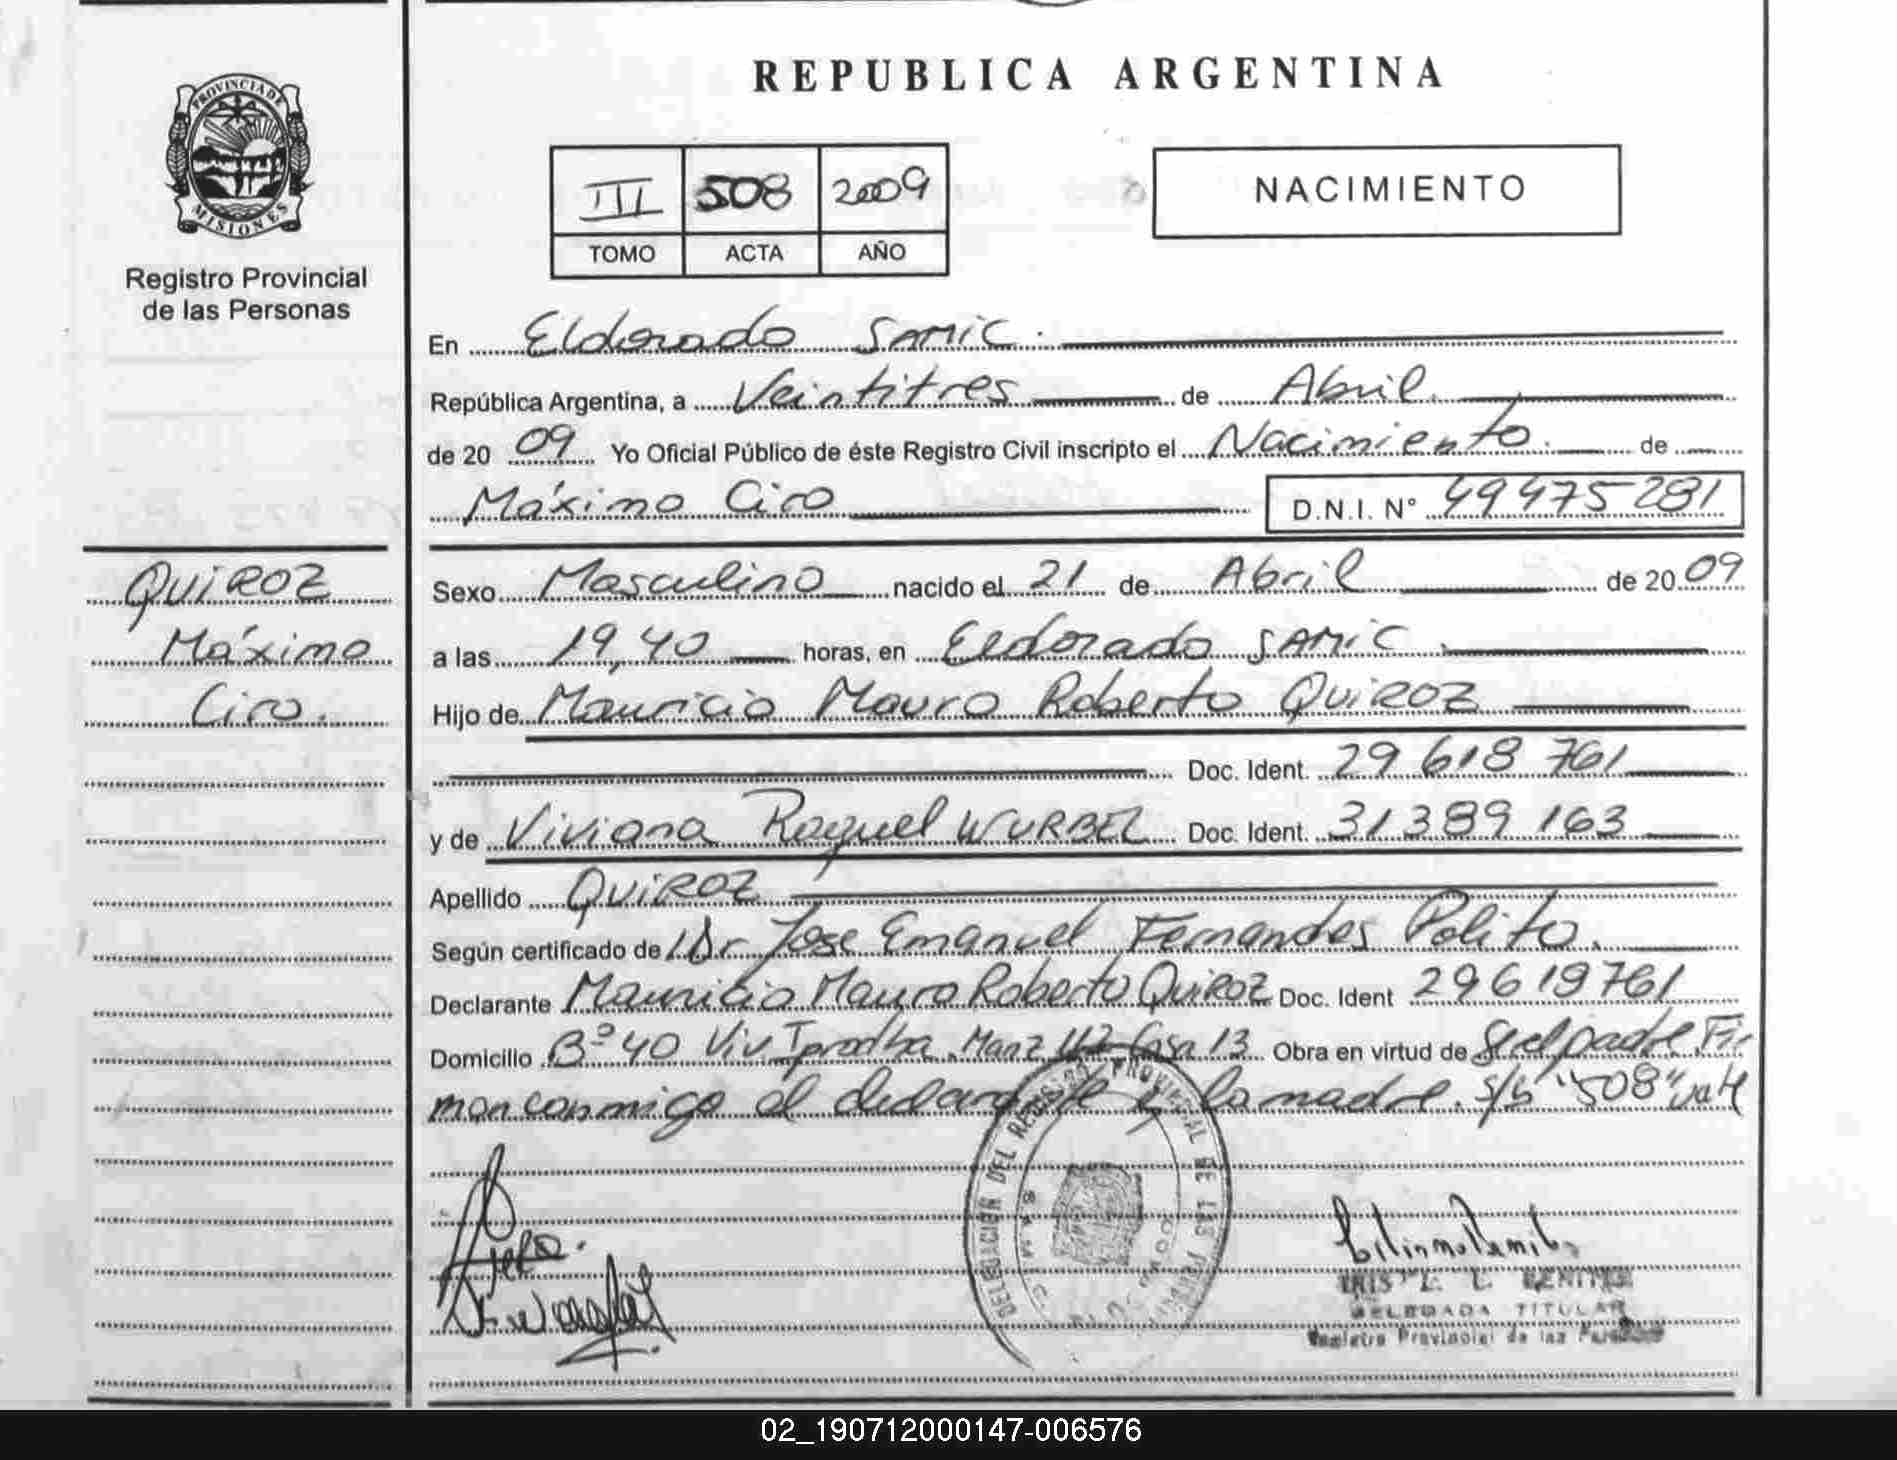 REPUBLICA ARGENTINA
PROVINCIA DE
MISIONES
Registro Provincial
de las Personas
III 508 2009
TOMO ACTA AÑO
NACIMIENTO
En Eldorado SAMIC.
República Argentina, a Veintitres de Abril.
de 20 09 Yo Oficial Público de éste Registro Civil inscripto el Nacimiento. de
Máximo Ciro D.N.I. Nº 49475281
QUIROZ
Máximo
Ciro.
Sexo Masculino nacido el 21 de Abril de 20 09
a las 19,40 horas, en Eldorado SAMIC.
Hijo de Mauricio Mauro Roberto QUIROZ
Doc. Ident. 29 618 761
y de Viviana Raquel WURBEL Doc. Ident. 31389 163
Apellido QUIROZ
Según certificado de Dr. Jose Emanuel Fernandes Polito.
Declarante Mauricio Mauro Roberto QUIROZ Doc. Ident 29619761
Domicilio Bº 40 Viv Iprodha. Manz Casa 13 Obra en virtud de Ser el padre. Fir
man conmigo el declarante y la madre. s/b "508" vale
DELEGACION DEL REGISTRO PROVINCIAL DE LAS
IRIS L. BENITEZ
DELEGADA TITULAR
Registro Provincial de las Personas
02_190712000147-006576